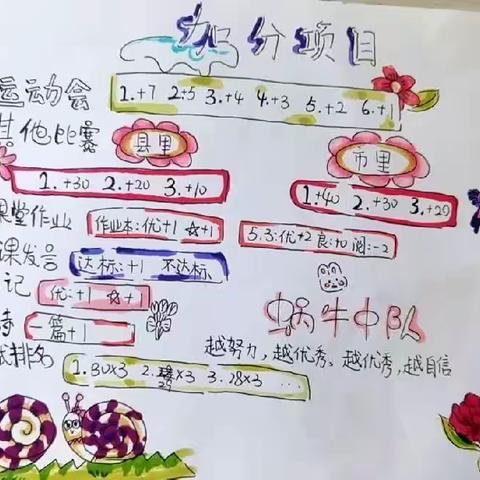 加分项目
运动会 1.+7 2+5 3.+4 4.+3 5.+2 6.+1
其他比赛 县里 市里
1.+30 2.+20 3.+10 1.+40 2.+30 3.+20
课堂作业 作业本:优+1 ☆+1 5.3:优+2 良:+0 阅:-2
课发言 达标:+1 不达标、
记 优:+1 ☆+1
蜗牛中队
诗 一篇+1
越努力,越优秀、越优秀,越自信
排名 1.30×3 2.29×3 3.28×3 ...